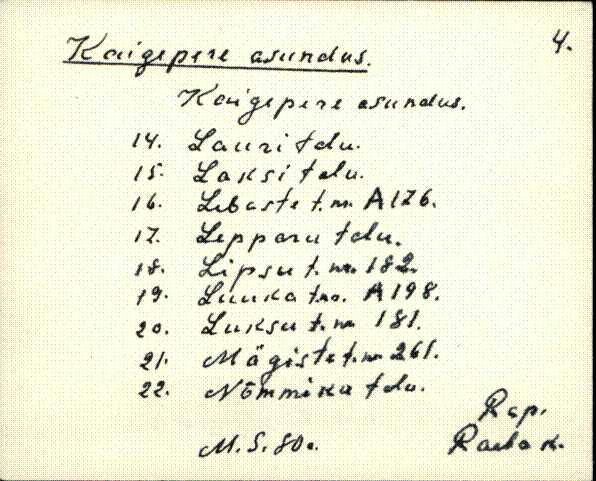 4.
Kaigepere asundus.
Kaigepere asundus.
14. Lauri tdu.
15. Laksi tdu.
16. Lebaste t. nr. A176.
17. Lepparu tdu.
18. Lipsu t. nr. 182.
19. Luuka t. nr. A198.
20. Luksu t. nr 181.
21. Mägiste t. nr 261.
22. Nõmmiku tdu.
Rap.
M. S. 80a. Raela k.